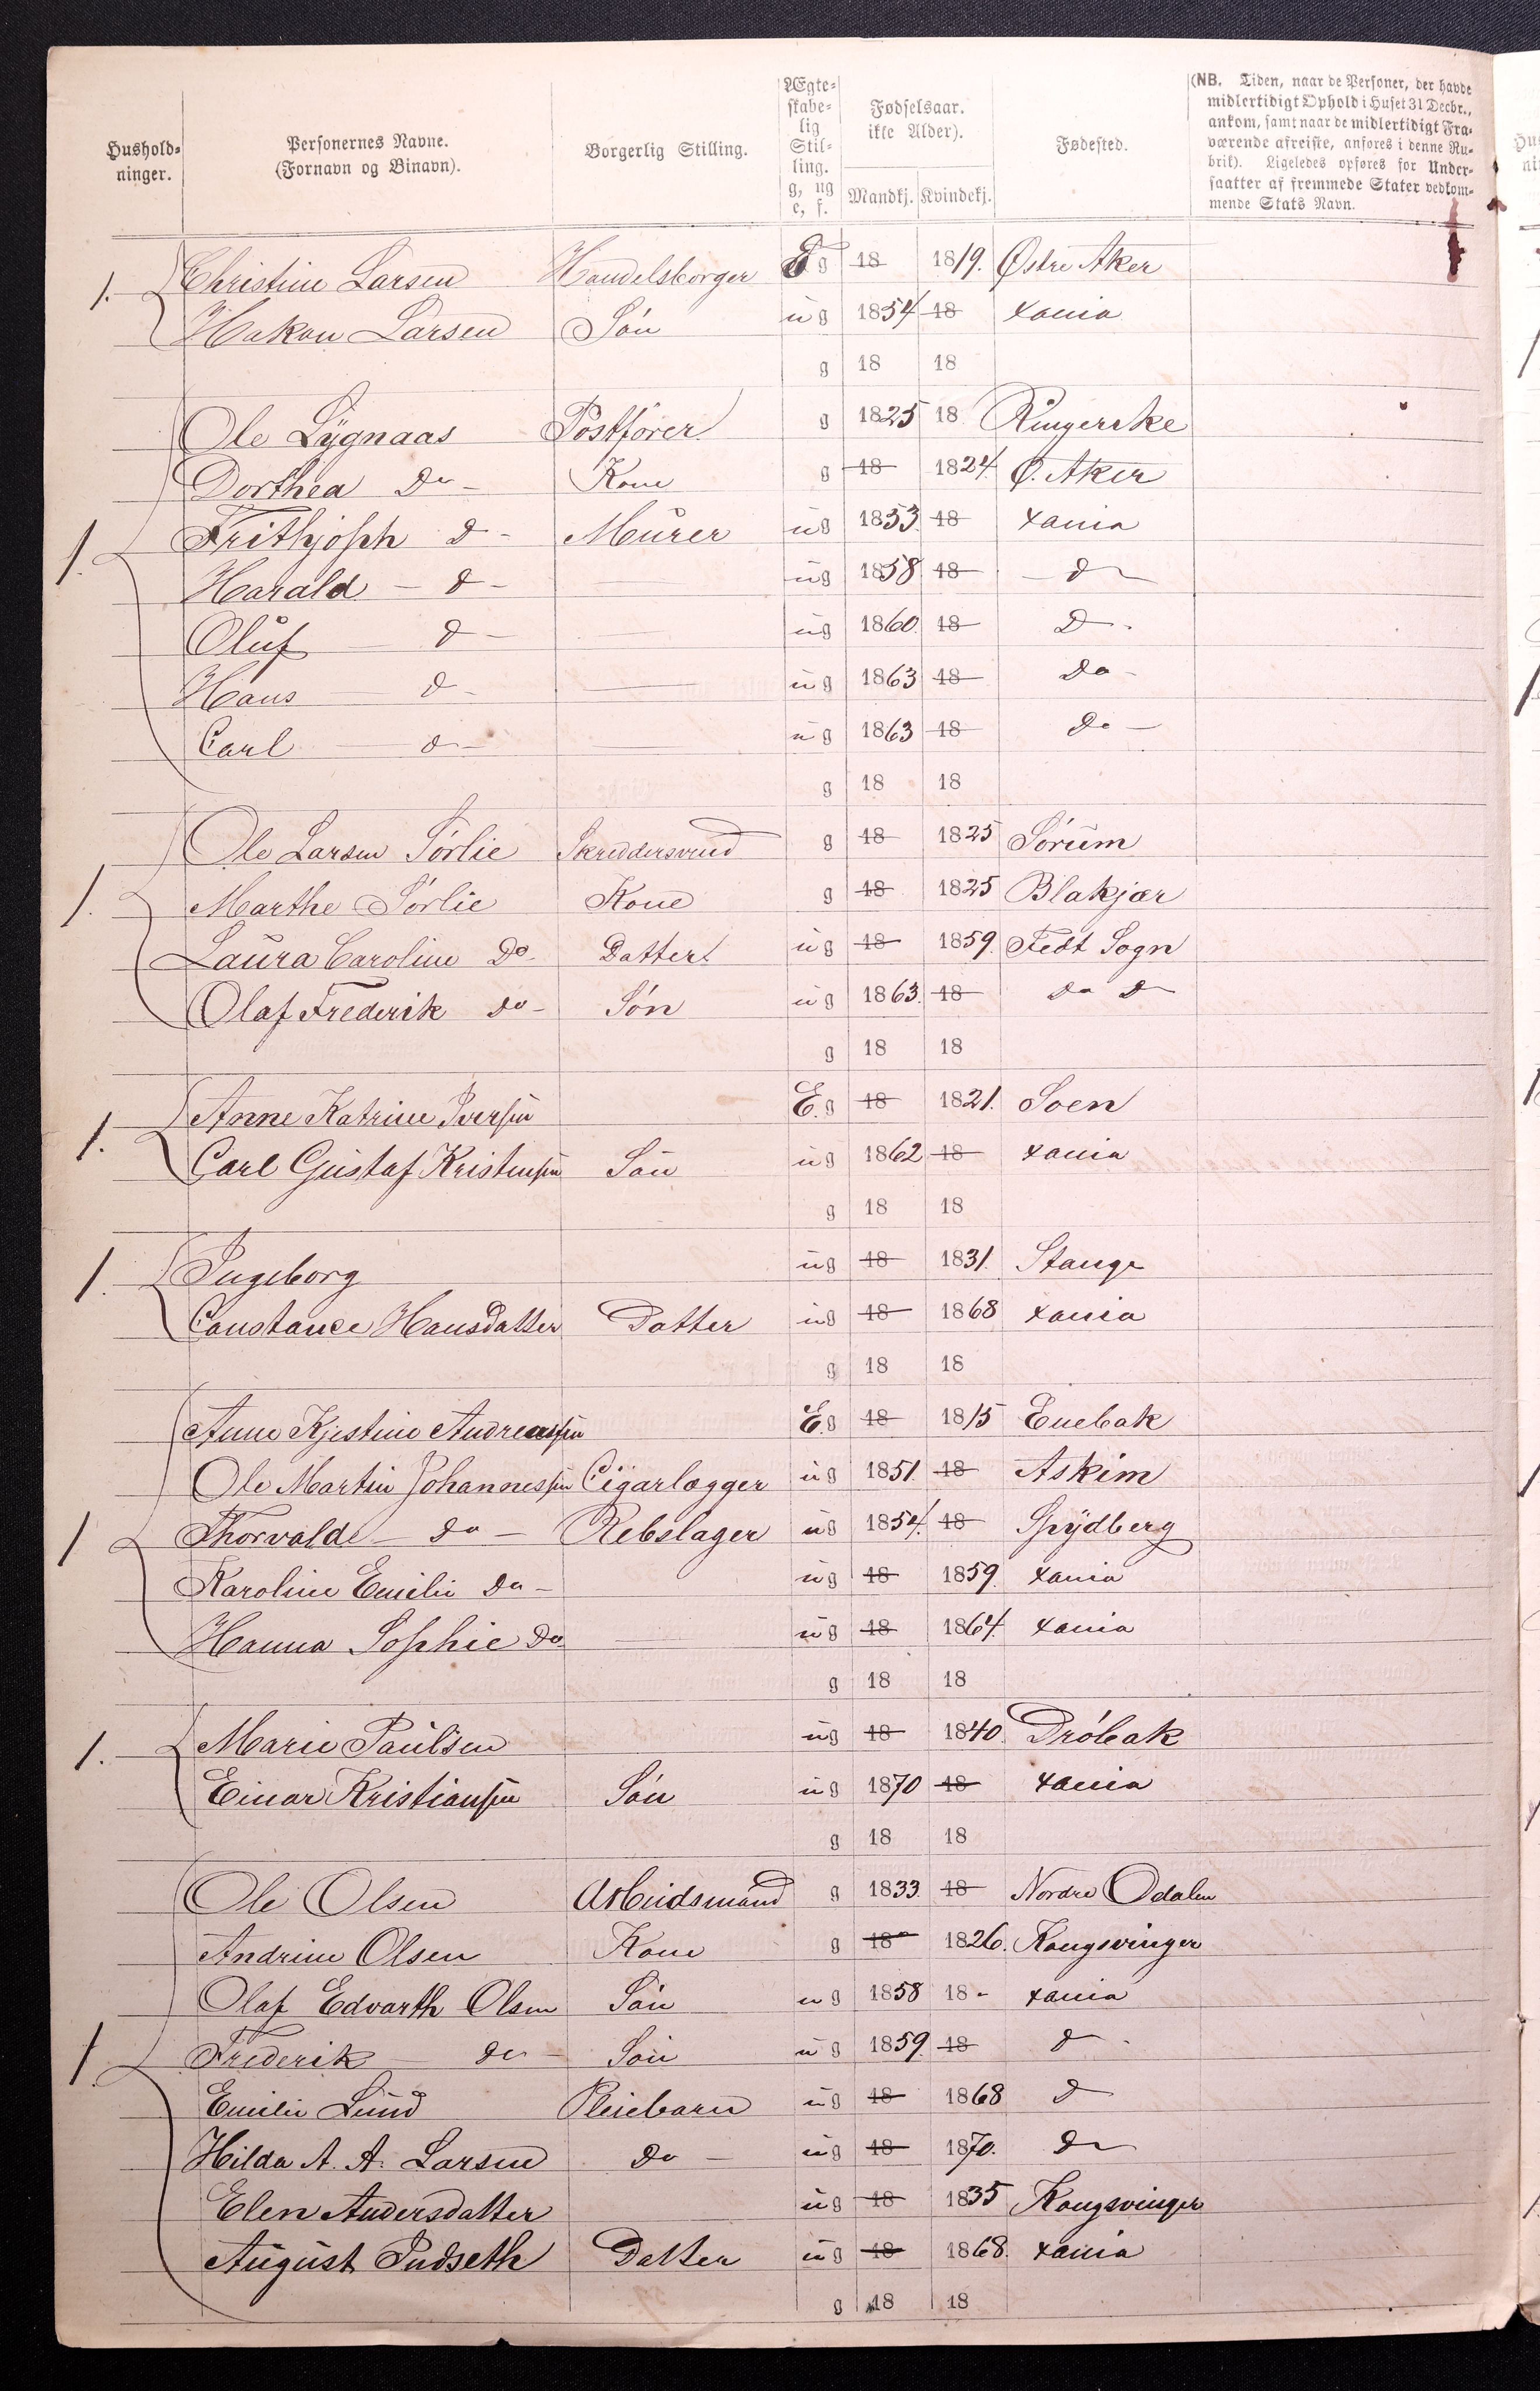 Husholdninger. Personernes Navne. (Fornavn og Binavn). Borgerlig Stilling. Ægteskabelig Stilling. g, ug e, f. Fødselsaar. (ikke Alder). Mandkj. Kvindekj. Fødested. (NB. Tiden, naar de Personer, der havde midlertidigt Ophold i Huset 31 Decbr., ankom, samt naar de midlertidigt Fraværende afreiste, anføres i denne Rubrik). Ligeledes opføres for Undersaatter af fremmede Stater vedkommende Stats Navn.
1. Christine Larsen Handelsborger E g 18 1819. Østre Aker
Hakon Larsen Søn ug 1854 18 Xania
g 18 18
Ole Lygnaas Postfører g 1825 18 Ringerike
Dorthea Do - Kone g 18 1824. Ø. Aker
1. Frithjoph D - Murer ug 1853. 18 Xania
Harald - D - ug 1858 18 D
Oluf - D - ug 1860. 18 D.
Hans - D - ug 1863 18 Do -
Carl - D - ug 1863 18 Do -
g 18 18
Ole Larsen Sørlie Skreddersvend g 18 1825 Sørum
1. Marthe Sørlie Kone g 18 1825 Blakjær
Laura Caroline Do - Datter ug 18 1859. Fedt Sogn
Olaf Frederik Do - Søn ug 1863. 18 Do D
g 18 18
1. Anne Katrine Iversen E. g 18 1821. Soen
Carl Gustaf Kristensen Søn ug 1862 18 Xania
g 18 18
1. Ingeborg ug 18 1831. Stange
Constance Hansdatter Datter ug 18 1868 Xania
g 18 18
Anne Kjestine Andreassen E. g 18 1815 Enebak
Ole Martin Johannessen Cigarlægger ug 1851. 18 Askim
1 Thorvald - Do - Rebslager ug 1854. 18 Spydberg
Karoline Emilie Do - ug 18 1859. Xania
Hanna Sophie Do ug 18 1864. Xania
g 18 18
1. Marie Paulsen ug 18 1840. Drøbak
Einar Kristiansen Søn ug 1870 18 Xania
g 18 18
Ole Olsen Arbeidsmand g 1833. 18 Nordre Odalen
Andrine Olsen Kone g 18 1826. Kongsvinger
Olaf Edvarth Olsen Søn ug 1858 18 - Xania
1. Frederik - Do - Søn ug 1859. 18 D -
Emilie Lund Pleiebarn ug 18 1868 D
Hilda A. A. Larsen Do - ug 18 1870. Do
Elen Andersdatter ug 18 1835 Kongsvinger
August Indseth Datter ug 18 1868. Xania
g 18 18